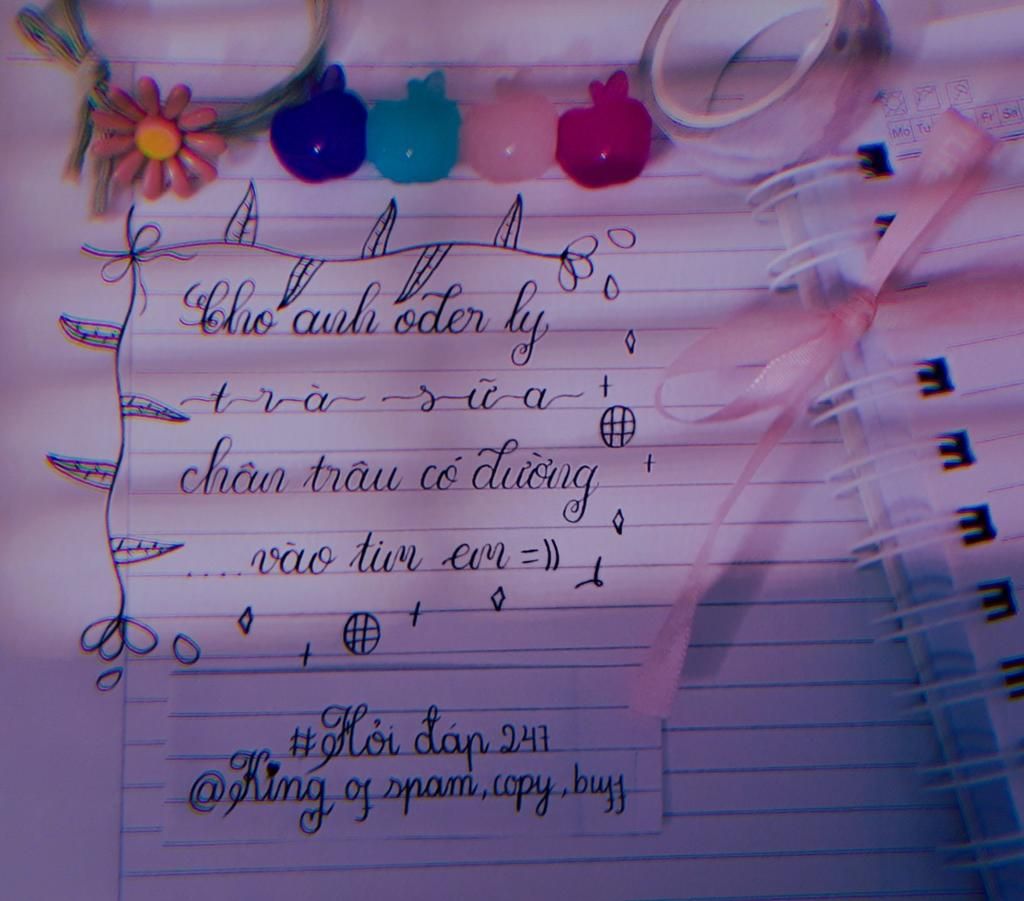 Mo Tu Fr Sa
Cho anh ođer ly
~t~r~à~ ~s~ữ~a~
chân trâu có đường
....vào tim em =))
#Hỏi đáp 247
@King of spam, copy, buff